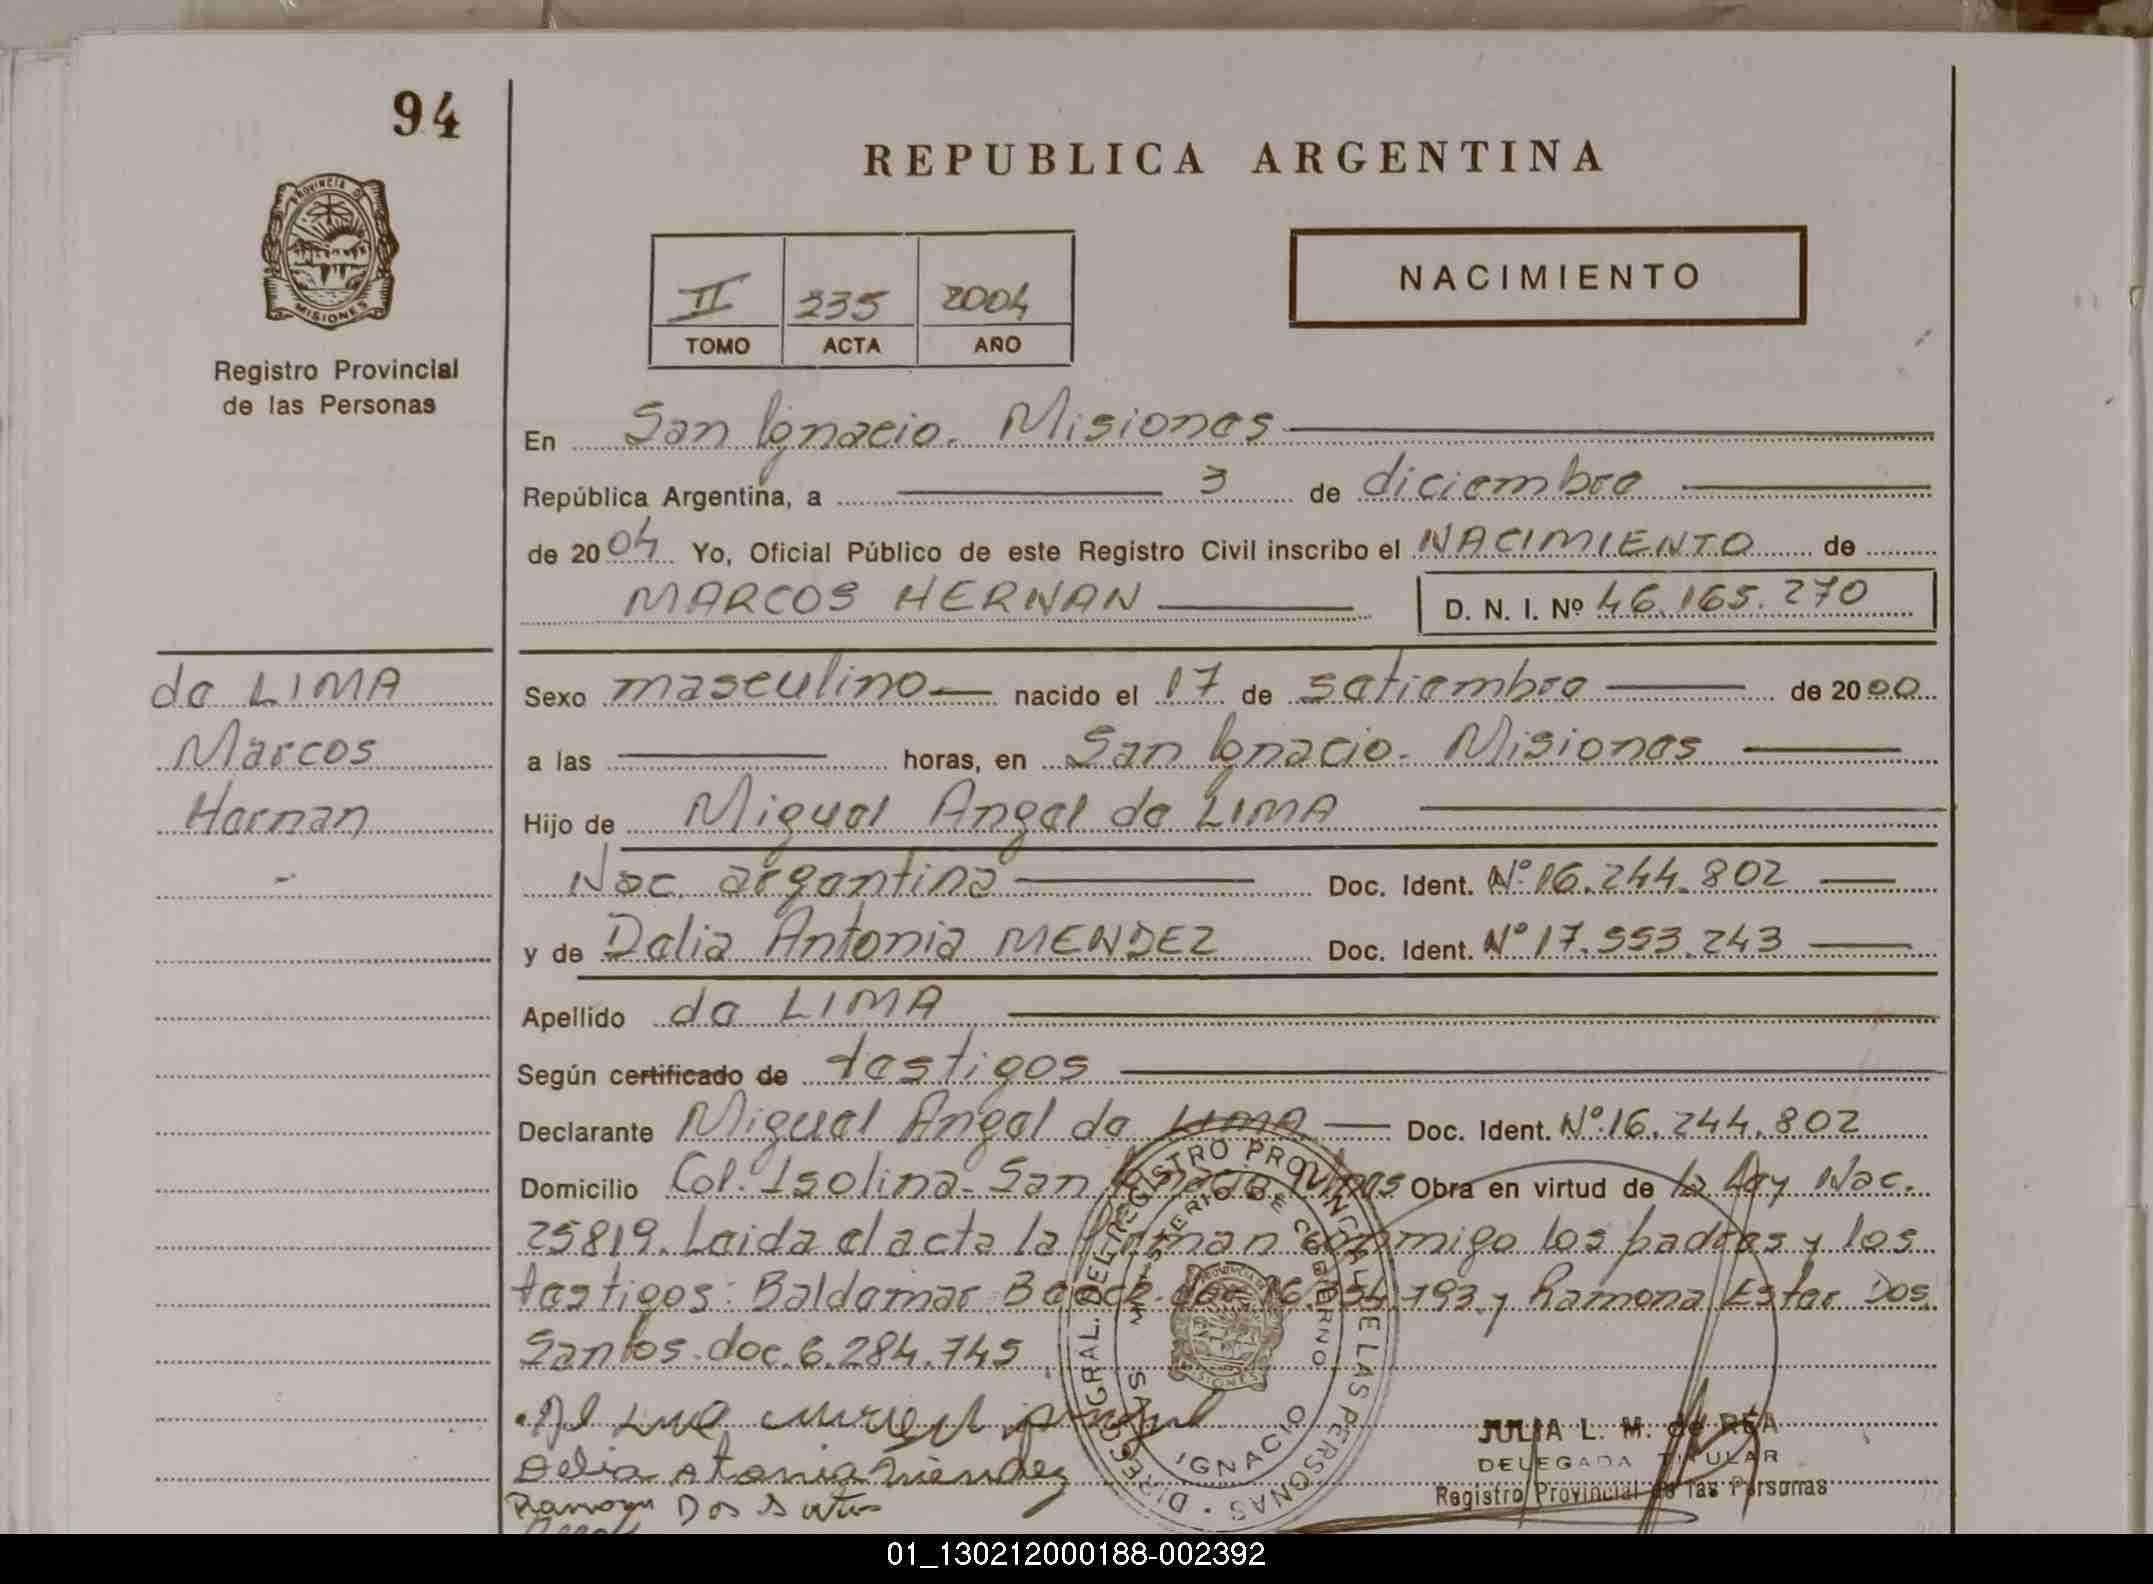 94
REPUBLICA ARGENTINA
PROVINCIA DE
MISIONES
Registro Provincial
de las Personas
II 235 2004
TOMO ACTA AÑO
NACIMIENTO
En San Ignacio. Misiones
República Argentina, a 3 de diciembre
de 2004 Yo, Oficial Público de este Registro Civil inscribo el NACIMIENTO de
MARCOS HERNAN D. N. I. Nº 46.165.270
de LIMA
Marcos
Hernan
Sexo masculino nacido el 17 de setiembre de 2000
a las horas, en San Ignacio. Misiones
Hijo de Miguel Angel de LIMA
Nac. argentina Doc. Ident. Nº 16.244.802
y de Delia Antonia MENDEZ Doc. Ident. Nº 17.553.243
Apellido de LIMA
Según certificado de testigos
Declarante Miguel Angel de LIMA Doc. Ident. Nº 16.244.802
Domicilio Col. Isolina - San Ignacio. Mnes Obra en virtud de la Ley Nac.
25819. Leida el acta la firman conmigo los padres y los
testigos: Baldemar doc 193 y Ramona Ester Dos
Santos. doc. 6.284.745
Delia Atonia Mendez
Ramona Dos Santos
DIRECC. GRAL. DEL REGISTRO PROVINCIAL DE LAS PERSONAS
MINISTERIO DE GOBIERNO
SAN IGNACIO
JULIA L. M. de REA
DELEGADA TITULAR
Registro Provincial de las Personas
01_130212000188-002392